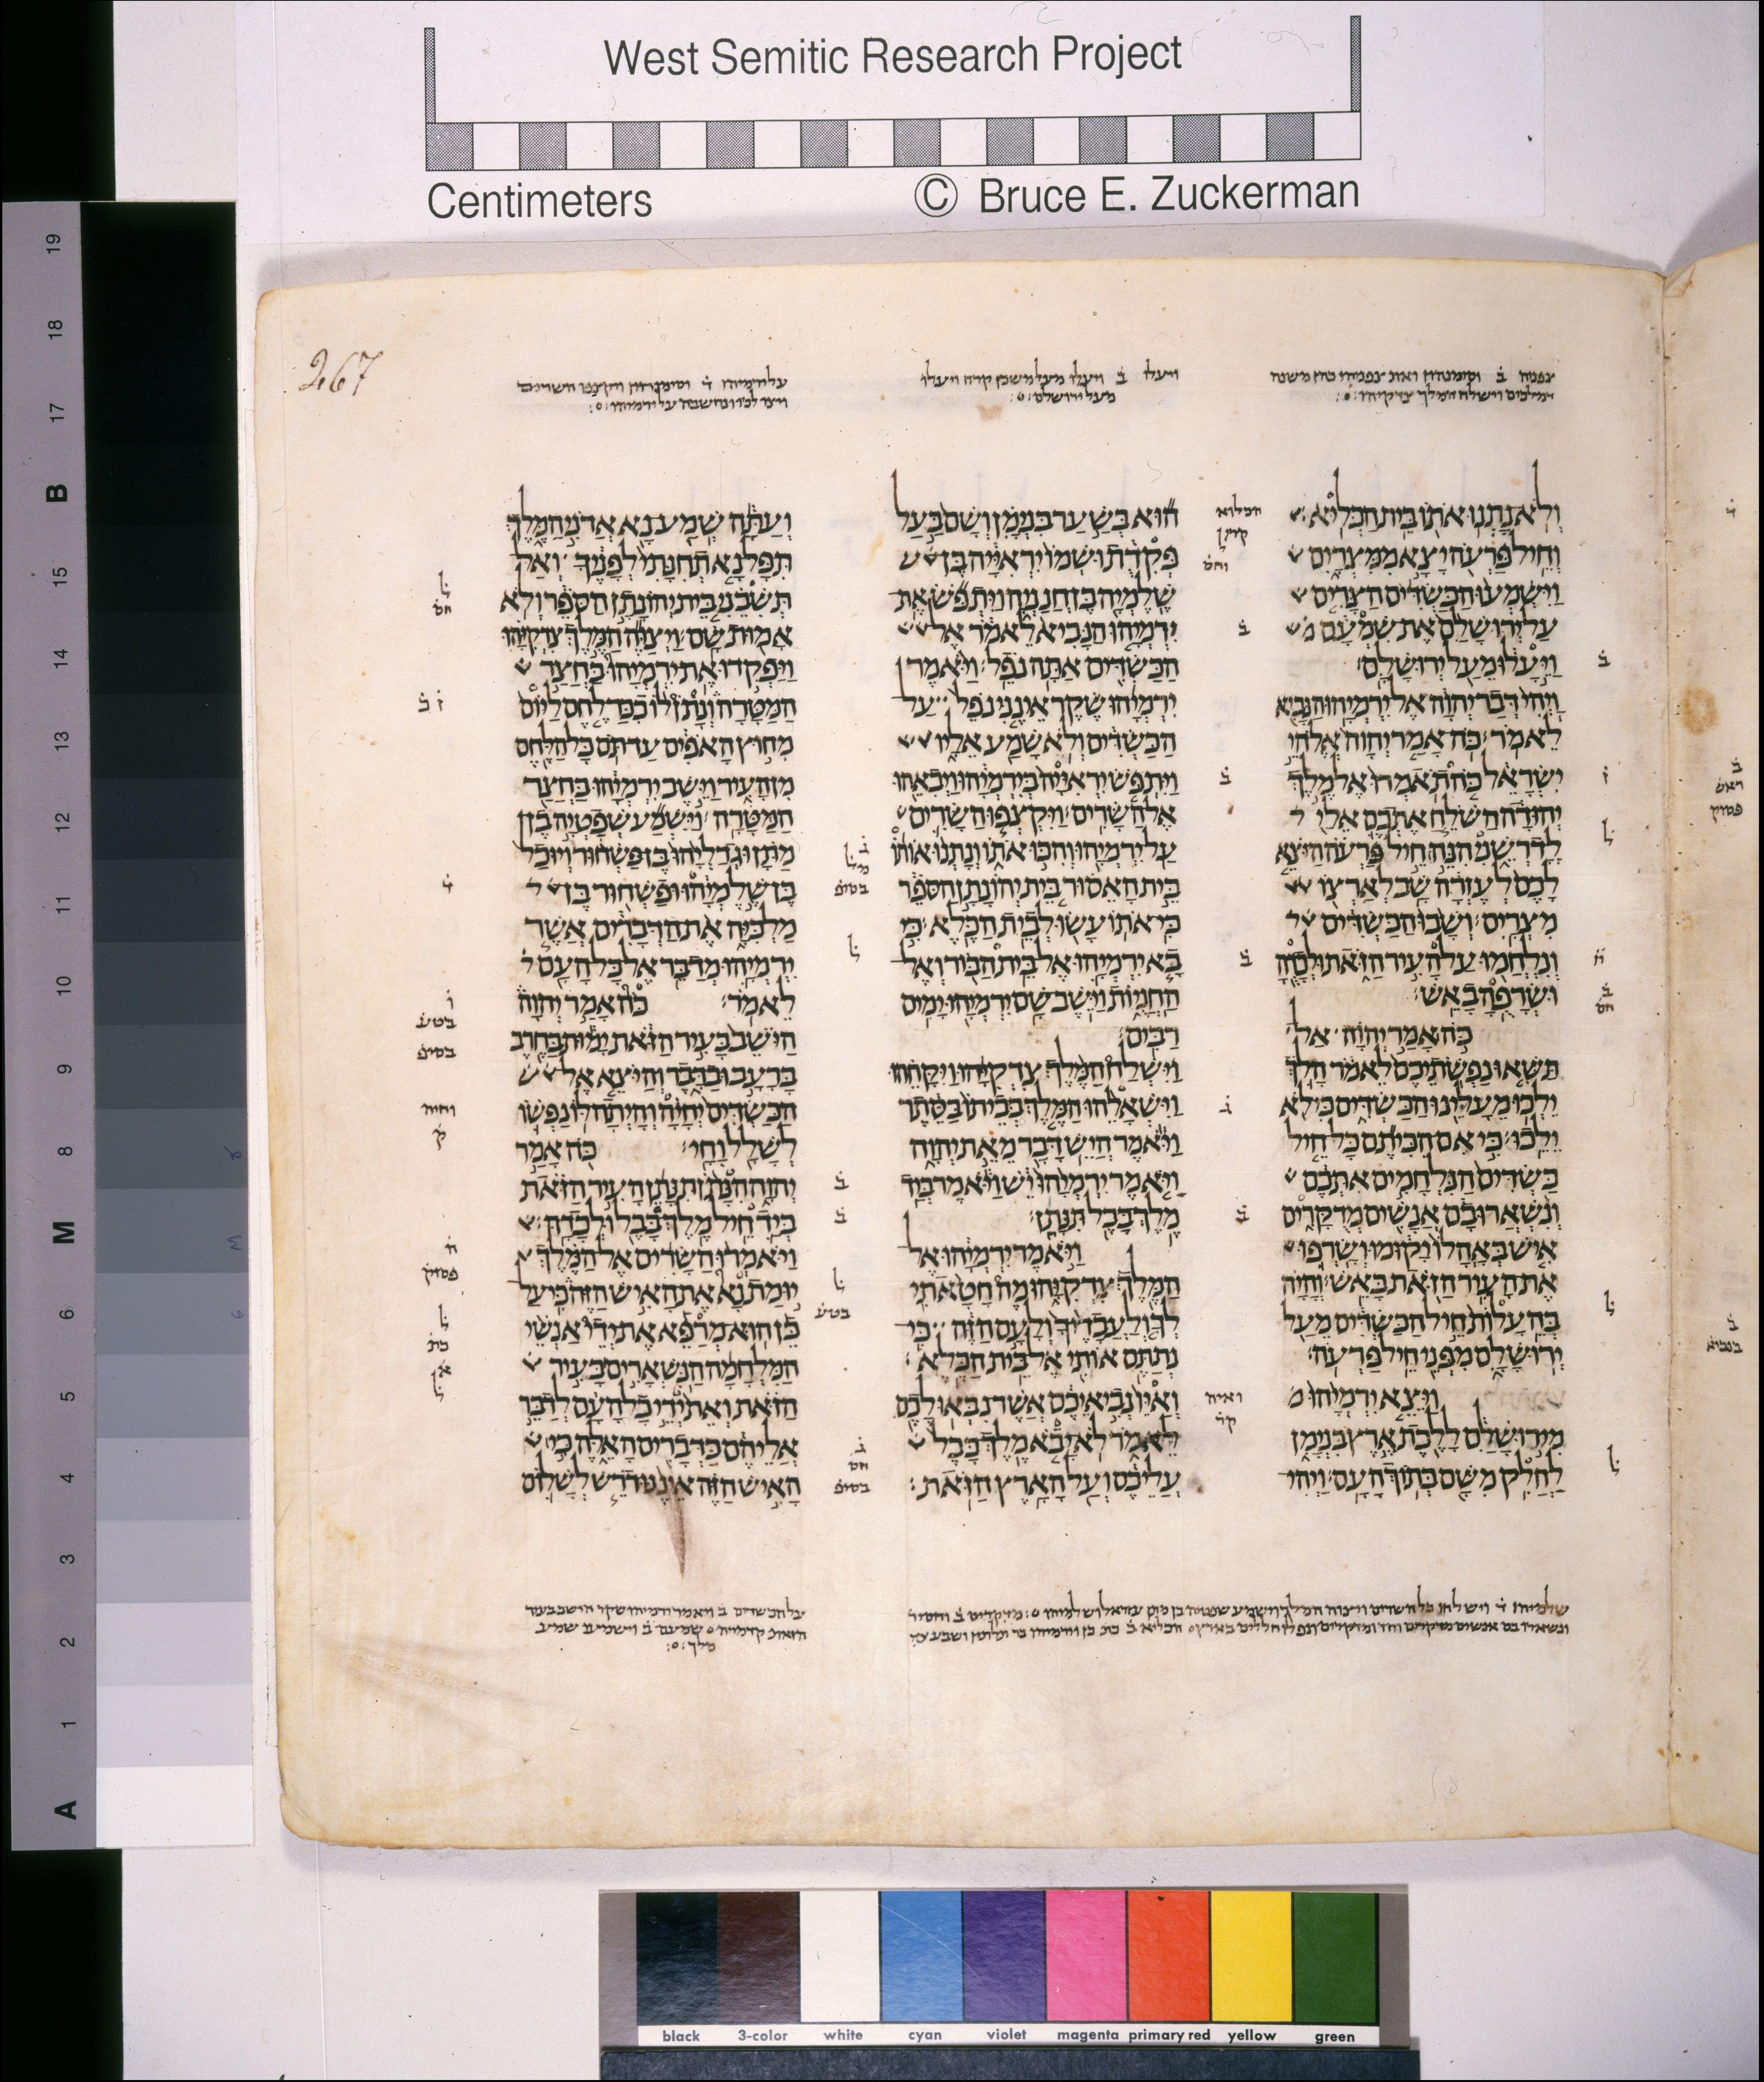 West Semitic Research Project
Centimeters © Bruce E. Zuckerman
267
ולא נתנו אתו בית הכליא׃
וחיל פרעה יצא ממצרים
וישמעו הכשדים הצרים
על ירושלם את שמעם
ויעלו מעל ירושלם׃
ויהי דבר יהוה אל ירמיהו הנביא
לאמר׃ כה אמר יהוה אלהי
ישראל כה תאמרו אל מלך
יהודה השלח אתכם אלי
לדרשני הנה חיל פרעה היצא
לכם לעזרה שב לארצו
מצרים׃ ושבו הכשדים
ונלחמו על העיר הזאת ולכדה
ושרפה באש׃
כה אמר יהוה אל
תשאו נפשתיכם לאמר הלך
ילכו מעלינו הכשדים כי לא
ילכו׃ כי אם הכיתם כל חיל
כשדים הנלחמים אתכם
ונשארו בם אנשים מדקרים
איש באהלו יקומו ושרפו
את העיר הזאת באש׃ והיה
בהעלות חיל הכשדים מעל
ירושלם מפני חיל פרעה׃
ויצא ירמיהו
מירושלם ללכת ארץ בנימן
לחלק משם בתוך העם׃ ויהי
הוא בשער בנימן ושם בעל
פקדת ושמו יראייה בן
שלמיה בן חנניה ויתפש את
ירמיהו הנביא לאמר אל
הכשדים אתה נפל׃ ויאמר
ירמיהו שקר אינני נפל על
הכשדים ולא שמע אליו
ויתפש יראייה בירמיהו ויבאהו
אל השרים׃ ויקצפו השרים
על ירמיהו והכו אתו ונתנו אותו
בית האסור בית יהונתן הספר
כי אתו עשו לבית הכלא׃ כי
בא ירמיהו אל בית הבור ואל
החניות וישב שם ירמיהו ימים
רבים׃
וישלח המלך צדקיהו ויקחהו
וישאלהו המלך בביתו בסתר
ויאמר היש דבר מאת יהוה
ויאמר ירמיהו יש ויאמר ביד
מלך בבל תנתן׃
ויאמר ירמיהו אל
המלך צדקיהו מה חטאתי
לך ולעבדיך ולעם הזה כי
נתתם אותי אל בית הכלא׃
ואיו נביאיכם אשר נבאו לכם
לאמר לא יבא מלך בבל
עליכם ועל הארץ הזאת׃
ועתה שמע נא אדני המלך
תפל נא תחנתי לפניך ואל
תשבני בית יהונתן הספר ולא
אמות שם׃ ויצוה המלך צדקיהו
ויפקדו את ירמיהו בחצר
המטרה ונתן לו ככר לחם ליום
מחוץ האפים עד תם כל הלחם
מן העיר וישב ירמיהו בחצר
המטרה׃ וישמע שפטיה בן
מתן וגדליהו בן פשחור ויוכל
בן שלמיהו ופשחור בן
מלכיה את הדברים אשר
ירמיהו מדבר אל כל העם
לאמר׃ כה אמר יהוה
הישב בעיר הזאת ימות בחרב
ברעב ובדבר והיצא אל
הכשדים יחיה והיתה לו נפשו
לשלל וחי׃ כה אמר
יהוה הנתן תנתן העיר הזאת
ביד חיל מלך בבל ולכדה׃
ויאמרו השרים אל המלך
יומת נא את האיש הזה כי על
כן הוא מרפא את ידי אנשי
המלחמה הנשארים בעיר
הזאת ואת ידי כל העם לדבר
אליהם כדברים האלה כי
האיש הזה איננו דרש לשלום
black 3-color white cyan violet magenta primary red yellow green